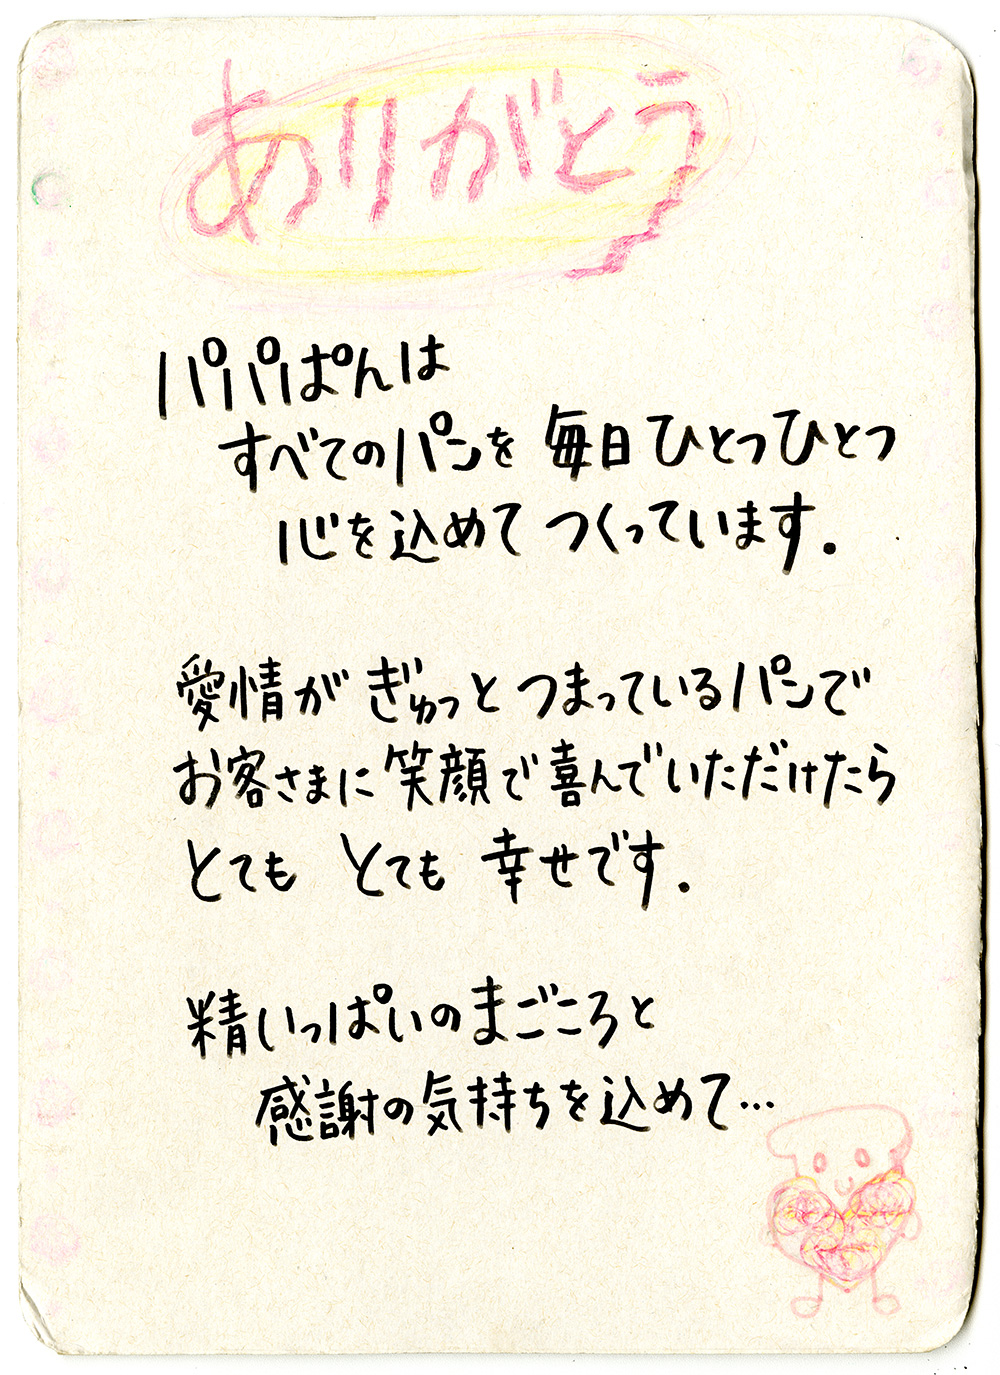 ありがとう
パパぱんは
すべてのパンを 毎日ひとつひとつ
心を込めて つくっています.
愛情が ぎゅっと つまっているパンで
お客さまに 笑顔で喜んでいただけたら
とても とても 幸せです.
精いっぱいの まごころと
感謝の気持ちを込めて…